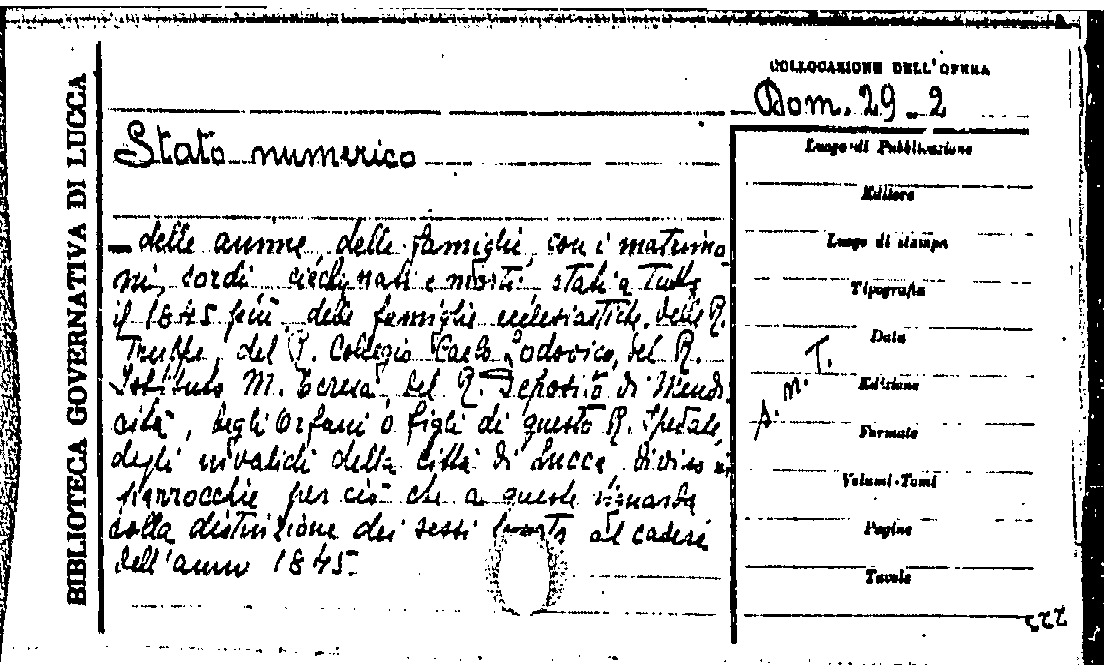 BIBLIOTECA GOVERNATIVA DI LUCCA
COLLOCAZIONE DELL'OPERA
Dom. 29-2
Stato numerico
delle anime, delle famiglie, con i matrimo
ni, sordi ciechi, nati e morti, stati a tutto
il 1845 più delle famiglie ecclesiastiche, delle R.
Truppe, del R. Collegio Carlo Lodovico, del R.
Istituto M. Teresa, del R. Deposito di Mendi
cità, degli Orfani o figli di questo R. Spedale,
degli invalidi della città di Lucca, diviso in
parrocchie per ciò che a queste riguarda
colla distinzione dei sessi al cadere
dell'anno 1845.
Luogo di Pubblicazione
Editore
Luogo di stampa
Tipografia
Data
Edizione
Formato
Volumi-Tomi
Pagine
Tavole
s. m. T.
222